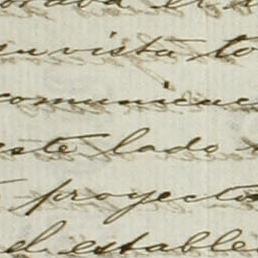 su vista to
comunicac
este lado
proyecto
el estable